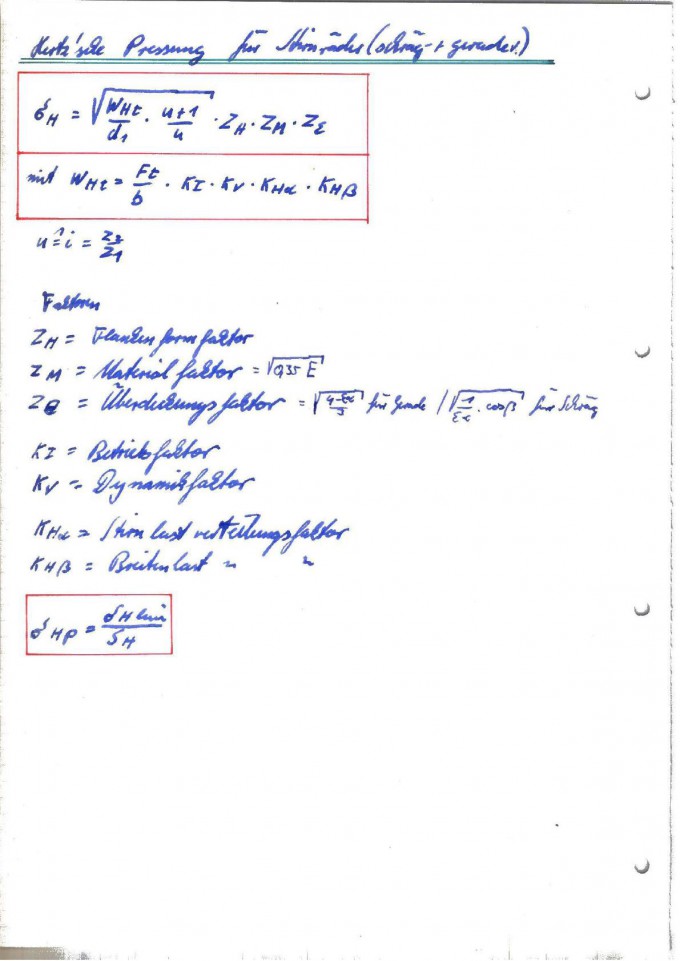 Hertz'sche Pressung für Stirnräder (schräg- + geradev.)
σH = √(WHt/d1 · (u+1)/u) · ZH · ZM · Zε
mit WHt = Ft/b · KI · KV · KHα · KHβ
u ≙ i = Z2/Z1
Faktoren
ZH = Flankenformfaktor
ZM = Materialfaktor = √(0,35 E)
Zε = Überdeckungsfaktor = √((4-εα)/3) für Gerade / √(1/εα · cosβ) für Schräg
KI = Betriebsfaktor
KV = Dynamikfaktor
KHα = Stirnlastverteilungsfaktor
KHβ = Breitenlast " "
σHP = σHlim/SH